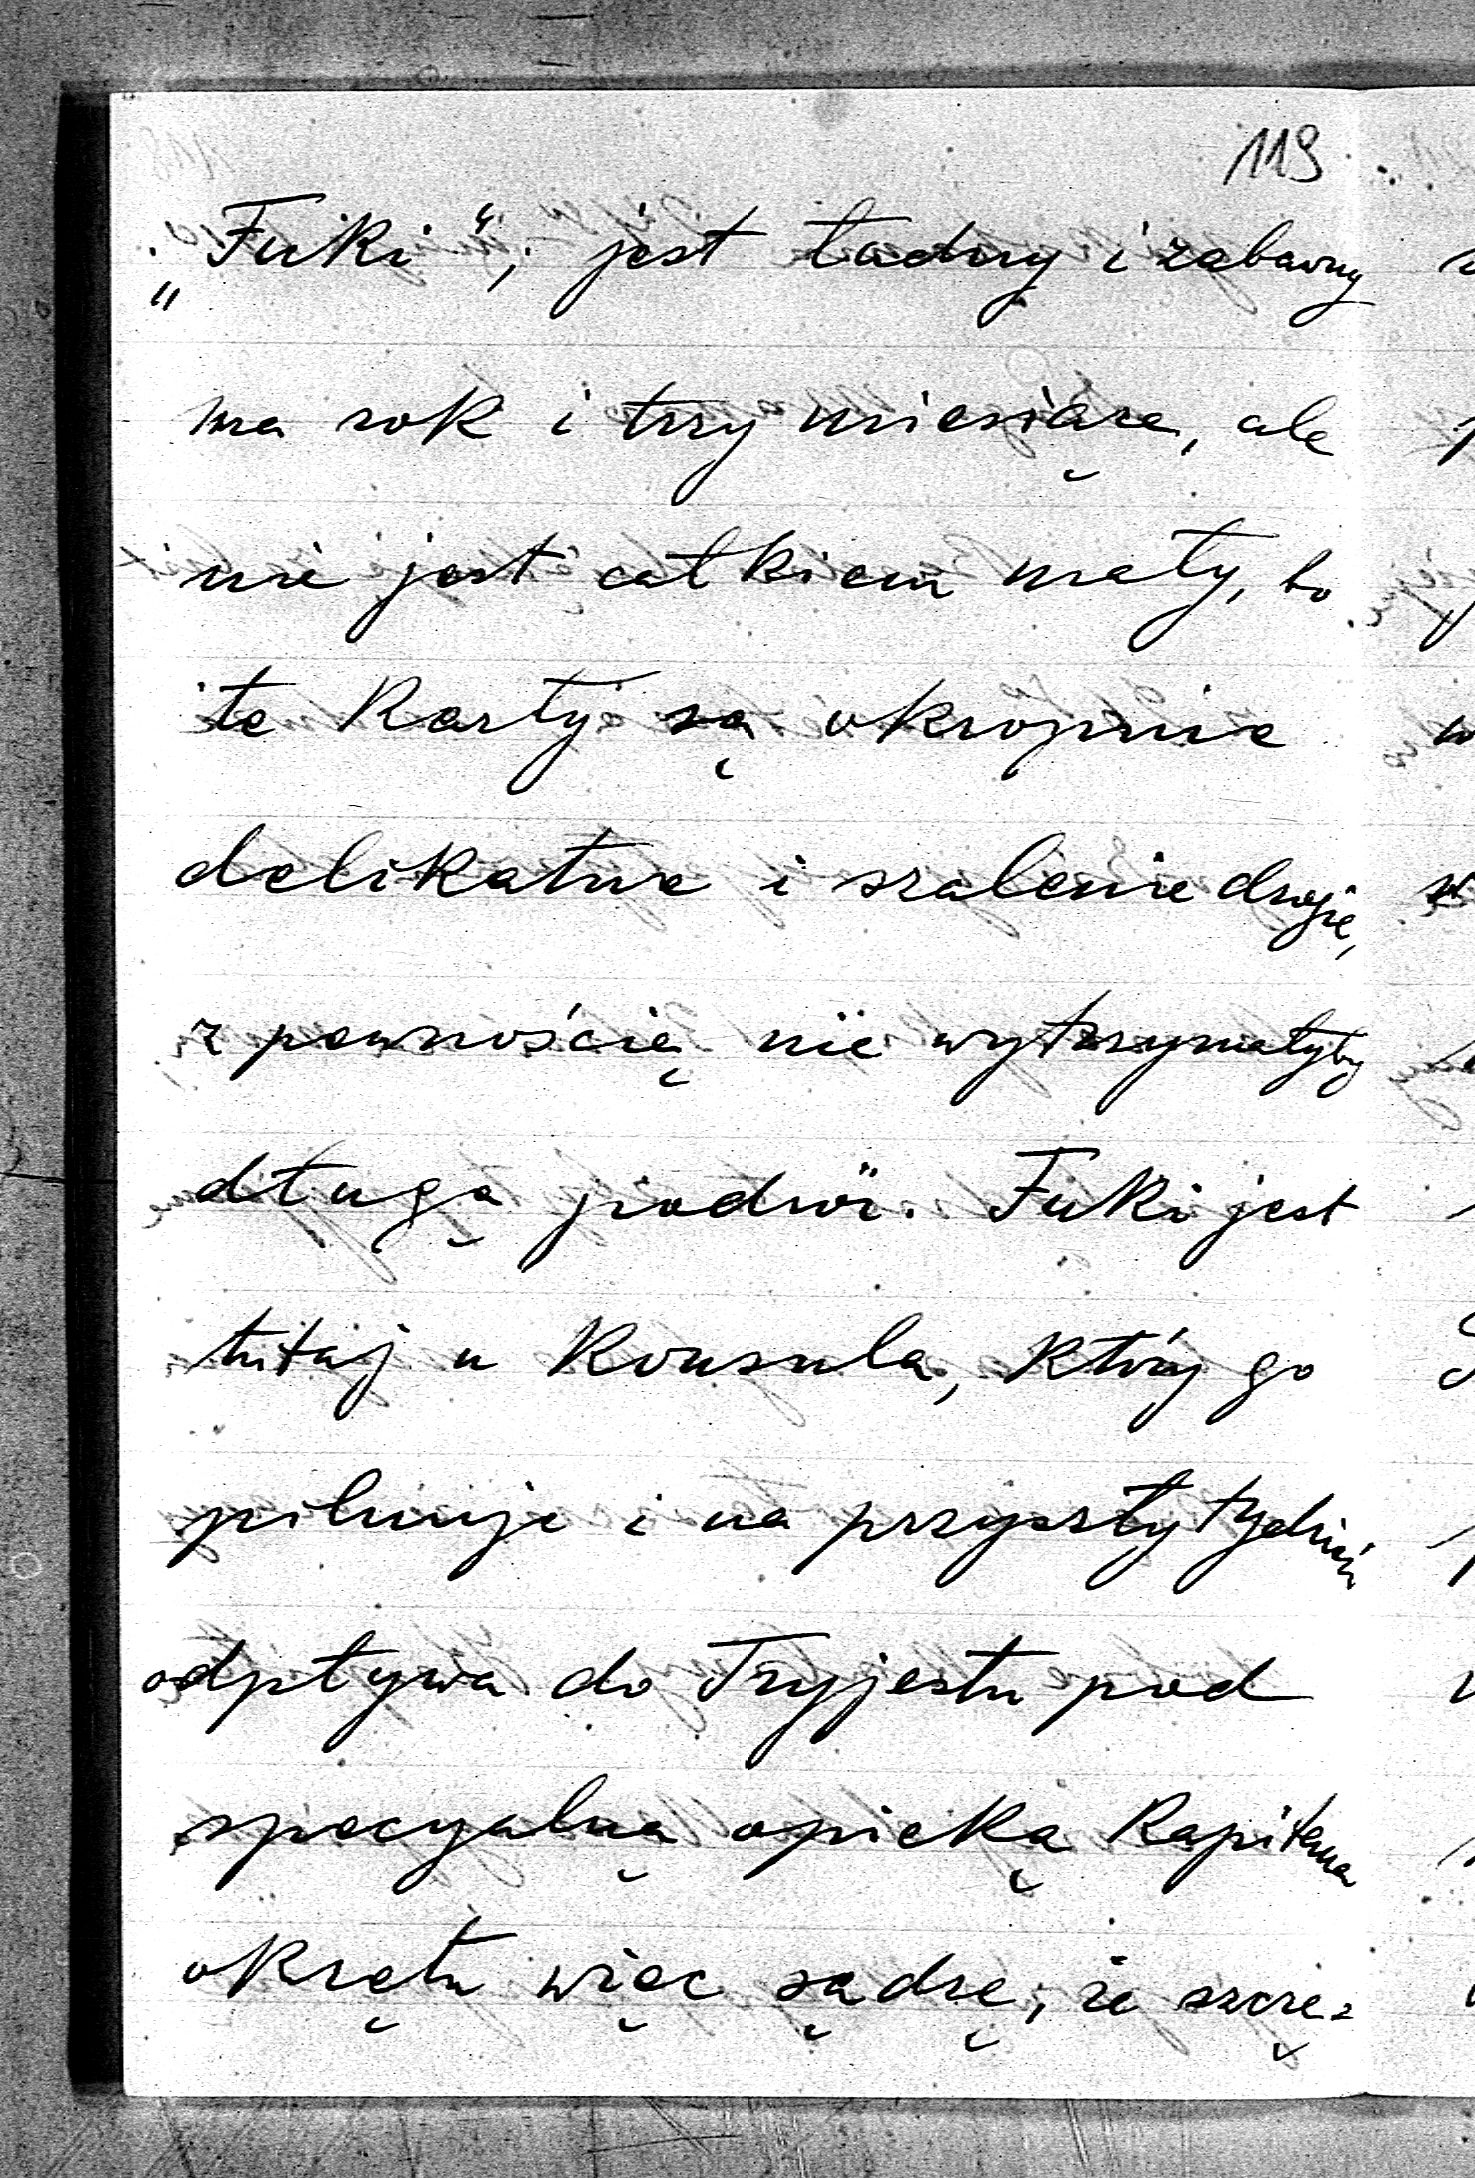 119
„Fuki“, jest ładny i zabawny
ma rok i trzy miesiące, ale
nie jest całkiem mały, bo
te Karty są okropnie
delikatne i szalenie drogie,
z pewnością nie wytrzymałyby
długą podróż. Fuki jest
tutaj u Konsula, który go
pilnuje i na przyszły tydzień
odpływa do Tryjestu pod
specyalną opieką Kapitana
okrętu więc sądzę, że szczę-